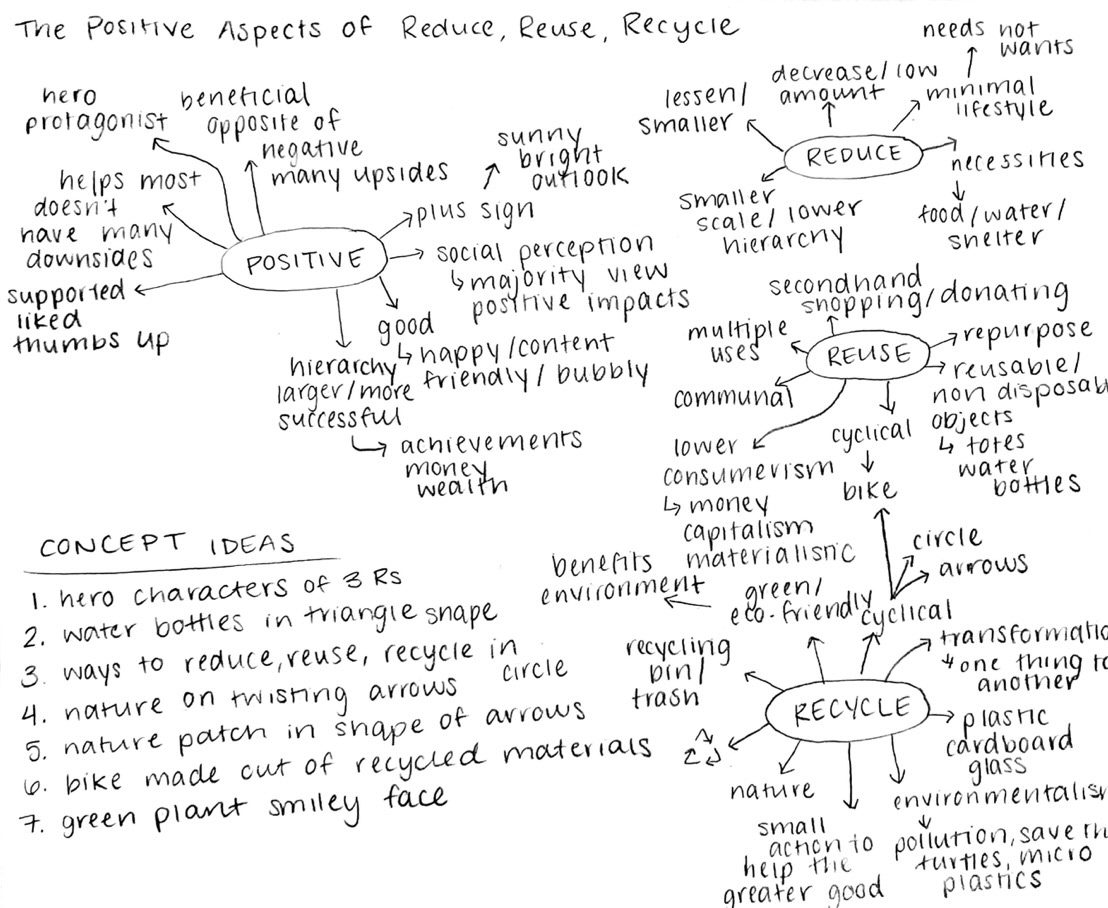 The Positive Aspects of Reduce, Reuse, Recycle
hero
protagonist
beneficial
opposite of
negative
many upsides
helps most
doesn't
have many
downsides
supported
liked
thumbs up
POSITIVE
sunny
bright
outlook
plus sign
social perception
majority view
positive impacts
good
happy/content
friendly/bubbly
hierarchy
larger/more
successful
achievements
money
wealth
needs not
wants
decrease/low
amount
minimal
lifestyle
lessen/
smaller
REDUCE
necessities
food/water/
shelter
smaller
scale/lower
hierarchy
secondhand
shopping/donating
multiple
uses
REUSE
repurpose
reusable/
non disposab
objects
totes
water
bottles
communal
cyclical
bike
lower
consumerism
money
capitalism
materialistic
circle
arrows
benefits
environment
green/
eco-friendly
cyclical
recycling
bin/
trash
RECYCLE
transformatio
one thing to
another
plastic
cardboard
glass
nature
small
action to
help the
greater good
environmentalism
pollution, save th
turtles, micro
plastics
CONCEPT IDEAS
1. hero characters of 3 Rs
2. water bottles in triangle shape
3. ways to reduce, reuse, recycle in
circle
4. nature on twisting arrows
5. nature patch in shape of arrows
6. bike made out of recycled materials
7. green plant smiley face